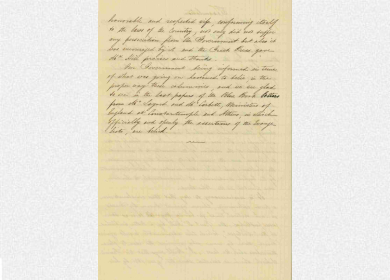 honorable and respected life, conforming itself
to the laws of the Country, not only did not suffer
any persecution from the Government but also it
was encouraged by it and the Greek Press gave
Mr. praises and Thanks.
Our Government being informed in time
of what was going on hastened to
and we are glad
to see in the last papers of the Blue Book letters
from Mr. Layard and Mr. Corbett, Ministers of
England at Constantinople and Athens, in which
officially and openly the assertions of the
are